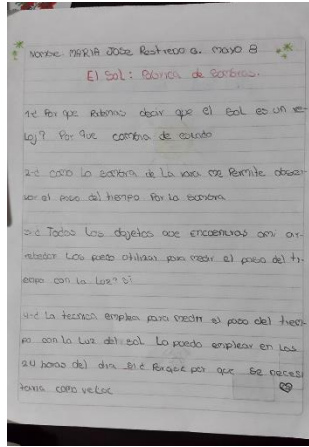 Nombre: MARIA JOSE Restrepo G. Mayo 8
El Sol: Fabrica de Sombras.
1-¿ Por que Podemos decir que el sol es un re
loj? Por que cambia de
2-¿ como la sombra de la vara me Permite obser
var el paso del tiempo Por la sombra
3-¿ Todos Los objetos que encuentras ami al
rededor Los puedo utilizar para medir el paso del ti
empo con la Luz? Si
4-¿ La tecnica emplea para medir el paso del tiem
po con la Luz del sol La puedo emplear en Las
24 horas del dia Porque por que se neces